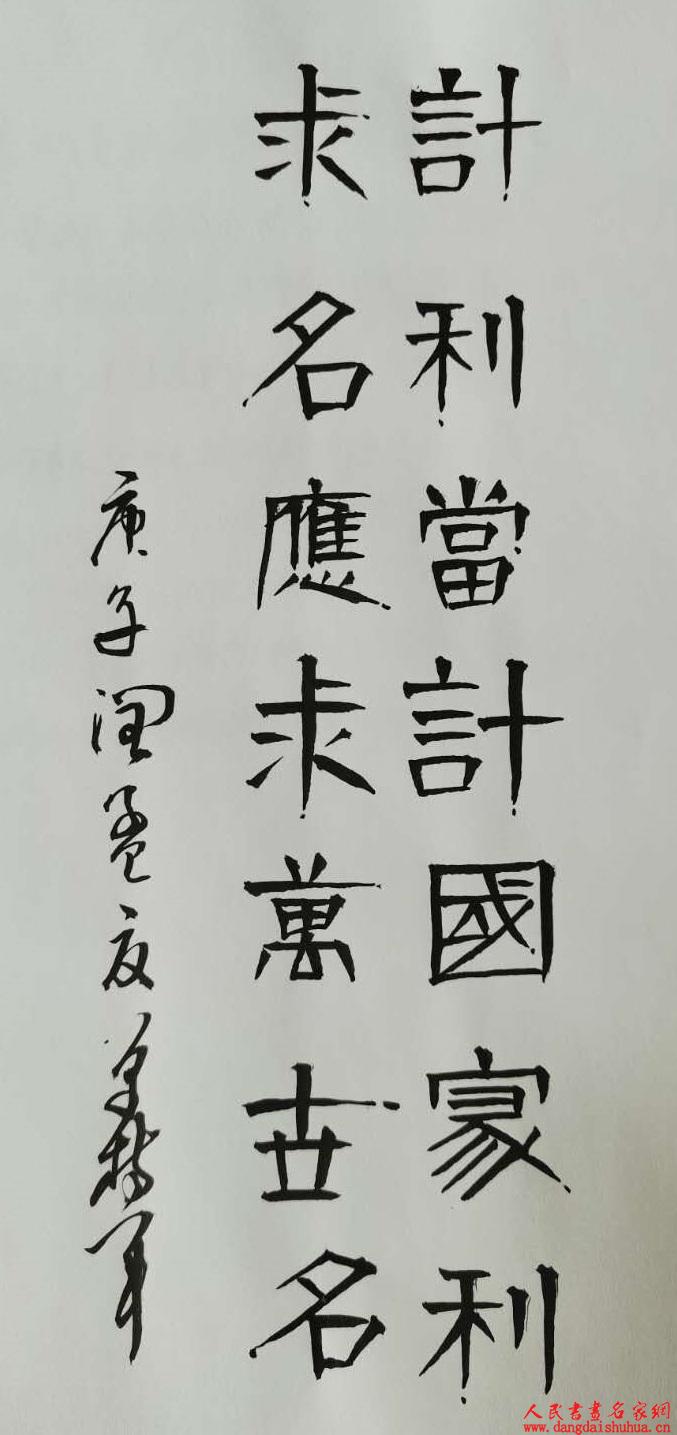 計利當計國家利
求名應求萬世名
庚子閏孟夏
人民書畫名家網
www.dangdaishuhua.cn